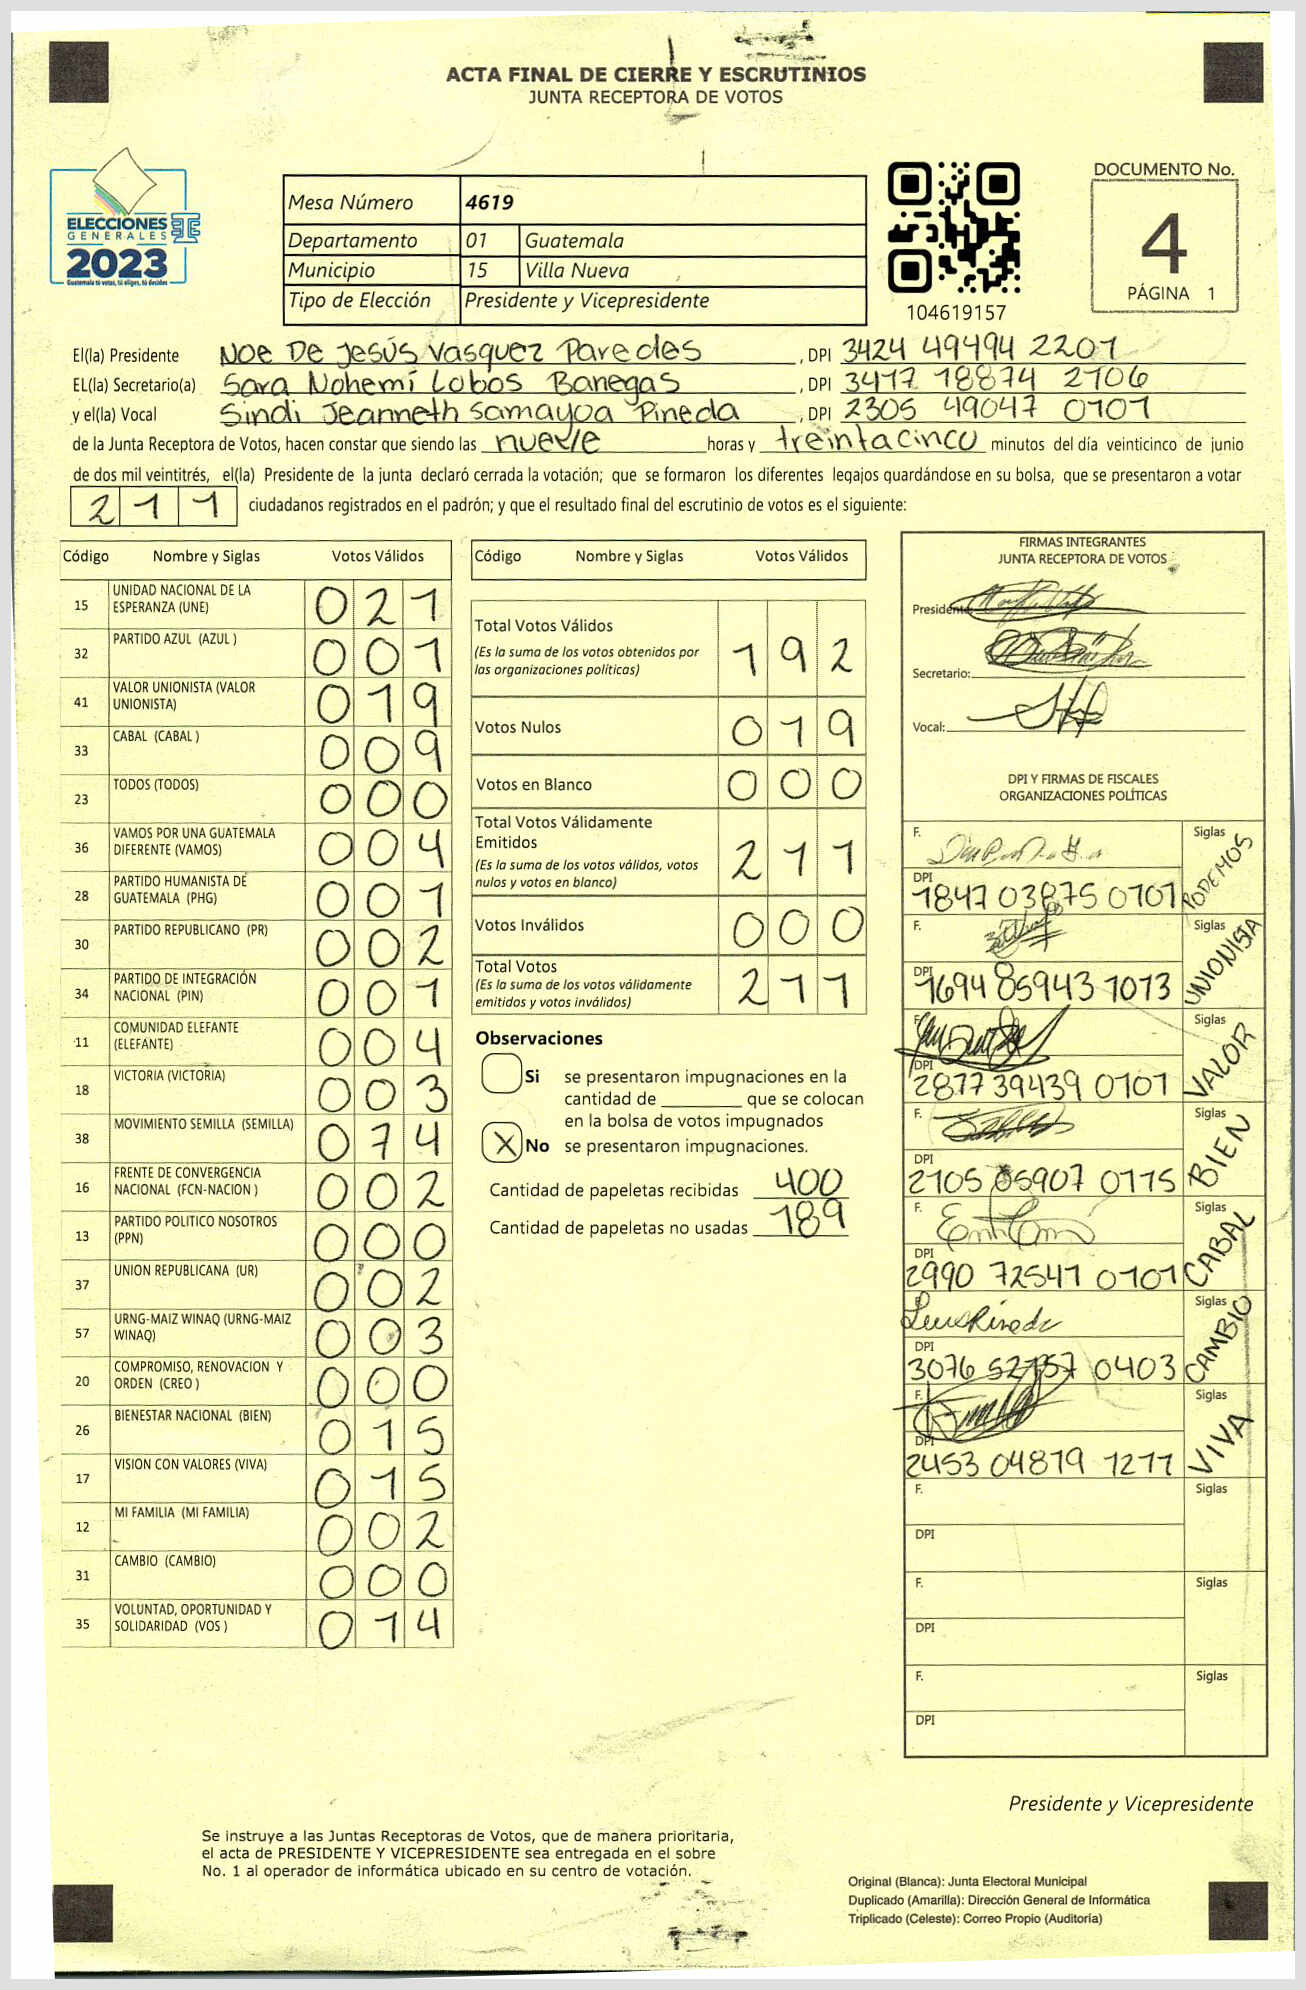 ACTA FINAL DE CIERRE Y ESCRUTINIOS
JUNTA RECEPTORA DE VOTOS
ELECCIONES
GENERALES
2023
Guatemala tú votas, tú eliges, tú decides
Mesa Número 4619
Departamento 01 Guatemala
Municipio 15 Villa Nueva
Tipo de Elección Presidente y Vicepresidente
104619157
DOCUMENTO No.
4
PÁGINA 1
El(la) Presidente Noe De Jesús Vasquez Paredes, DPI 3424 49494 2201
EL(la) Secretario(a) Sara Nohemí Lobos Banegas, DPI 3417 18874 2106
y el(la) Vocal Sindi Jeanneth Samayoa Pineda, DPI 2305 49047 0101
de la Junta Receptora de Votos, hacen constar que siendo las nueve horas y treintacinco minutos del día veinticinco de junio
de dos mil veintitrés, el(la) Presidente de la junta declaró cerrada la votación; que se formaron los diferentes legajos guardándose en su bolsa, que se presentaron a votar
211 ciudadanos registrados en el padrón; y que el resultado final del escrutinio de votos es el siguiente:
Código Nombre y Siglas Votos Válidos
15 UNIDAD NACIONAL DE LA ESPERANZA (UNE) 021
32 PARTIDO AZUL (AZUL ) 001
41 VALOR UNIONISTA (VALOR UNIONISTA) 019
33 CABAL (CABAL ) 009
23 TODOS (TODOS) 000
36 VAMOS POR UNA GUATEMALA DIFERENTE (VAMOS) 004
28 PARTIDO HUMANISTA DE GUATEMALA (PHG) 001
30 PARTIDO REPUBLICANO (PR) 002
34 PARTIDO DE INTEGRACIÓN NACIONAL (PIN) 001
11 COMUNIDAD ELEFANTE (ELEFANTE) 004
18 VICTORIA (VICTORIA) 003
38 MOVIMIENTO SEMILLA (SEMILLA) 074
16 FRENTE DE CONVERGENCIA NACIONAL (FCN-NACION ) 002
13 PARTIDO POLITICO NOSOTROS (PPN) 000
37 UNION REPUBLICANA (UR) 002
57 URNG-MAIZ WINAQ (URNG-MAIZ WINAQ) 003
20 COMPROMISO, RENOVACION Y ORDEN (CREO ) 000
26 BIENESTAR NACIONAL (BIEN) 015
17 VISION CON VALORES (VIVA) 015
12 MI FAMILIA (MI FAMILIA) 002
31 CAMBIO (CAMBIO) 000
35 VOLUNTAD, OPORTUNIDAD Y SOLIDARIDAD (VOS ) 014
Código Nombre y Siglas Votos Válidos
Total Votos Válidos 192
(Es la suma de los votos obtenidos por
las organizaciones políticas)
Votos Nulos 019
Votos en Blanco 000
Total Votos Válidamente
Emitidos 211
(Es la suma de los votos válidos, votos
nulos y votos en blanco)
Votos Inválidos 000
Total Votos 211
(Es la suma de los votos válidamente
emitidos y votos inválidos)
Observaciones
Si se presentaron impugnaciones en la
cantidad de ________ que se colocan
en la bolsa de votos impugnados
X No se presentaron impugnaciones.
Cantidad de papeletas recibidas 400
Cantidad de papeletas no usadas 189
FIRMAS INTEGRANTES
JUNTA RECEPTORA DE VOTOS
Presidente:
Secretario:
Vocal:
DPI Y FIRMAS DE FISCALES
ORGANIZACIONES POLÍTICAS
F. Siglas PODEMOS
DPI 1847 03875 0101
F. Siglas UNIONISTA
DPI 1694 85943 1013
F. Siglas VALOR
DPI 2877 39439 0101
F. Siglas BIEN
DPI 2105 05907 0115
F. Siglas CABAL
DPI 2990 72541 0101
F. Siglas CAMBIO
DPI 3076 52157 0403
F. Siglas VIVA
DPI 2453 04819 1211
F. Siglas
DPI
F. Siglas
DPI
F. Siglas
DPI
Presidente y Vicepresidente
Se instruye a las Juntas Receptoras de Votos, que de manera prioritaria,
el acta de PRESIDENTE Y VICEPRESIDENTE sea entregada en el sobre
No. 1 al operador de informática ubicado en su centro de votación.
Original (Blanca): Junta Electoral Municipal
Duplicado (Amarilla): Dirección General de Informática
Triplicado (Celeste): Correo Propio (Auditoría)